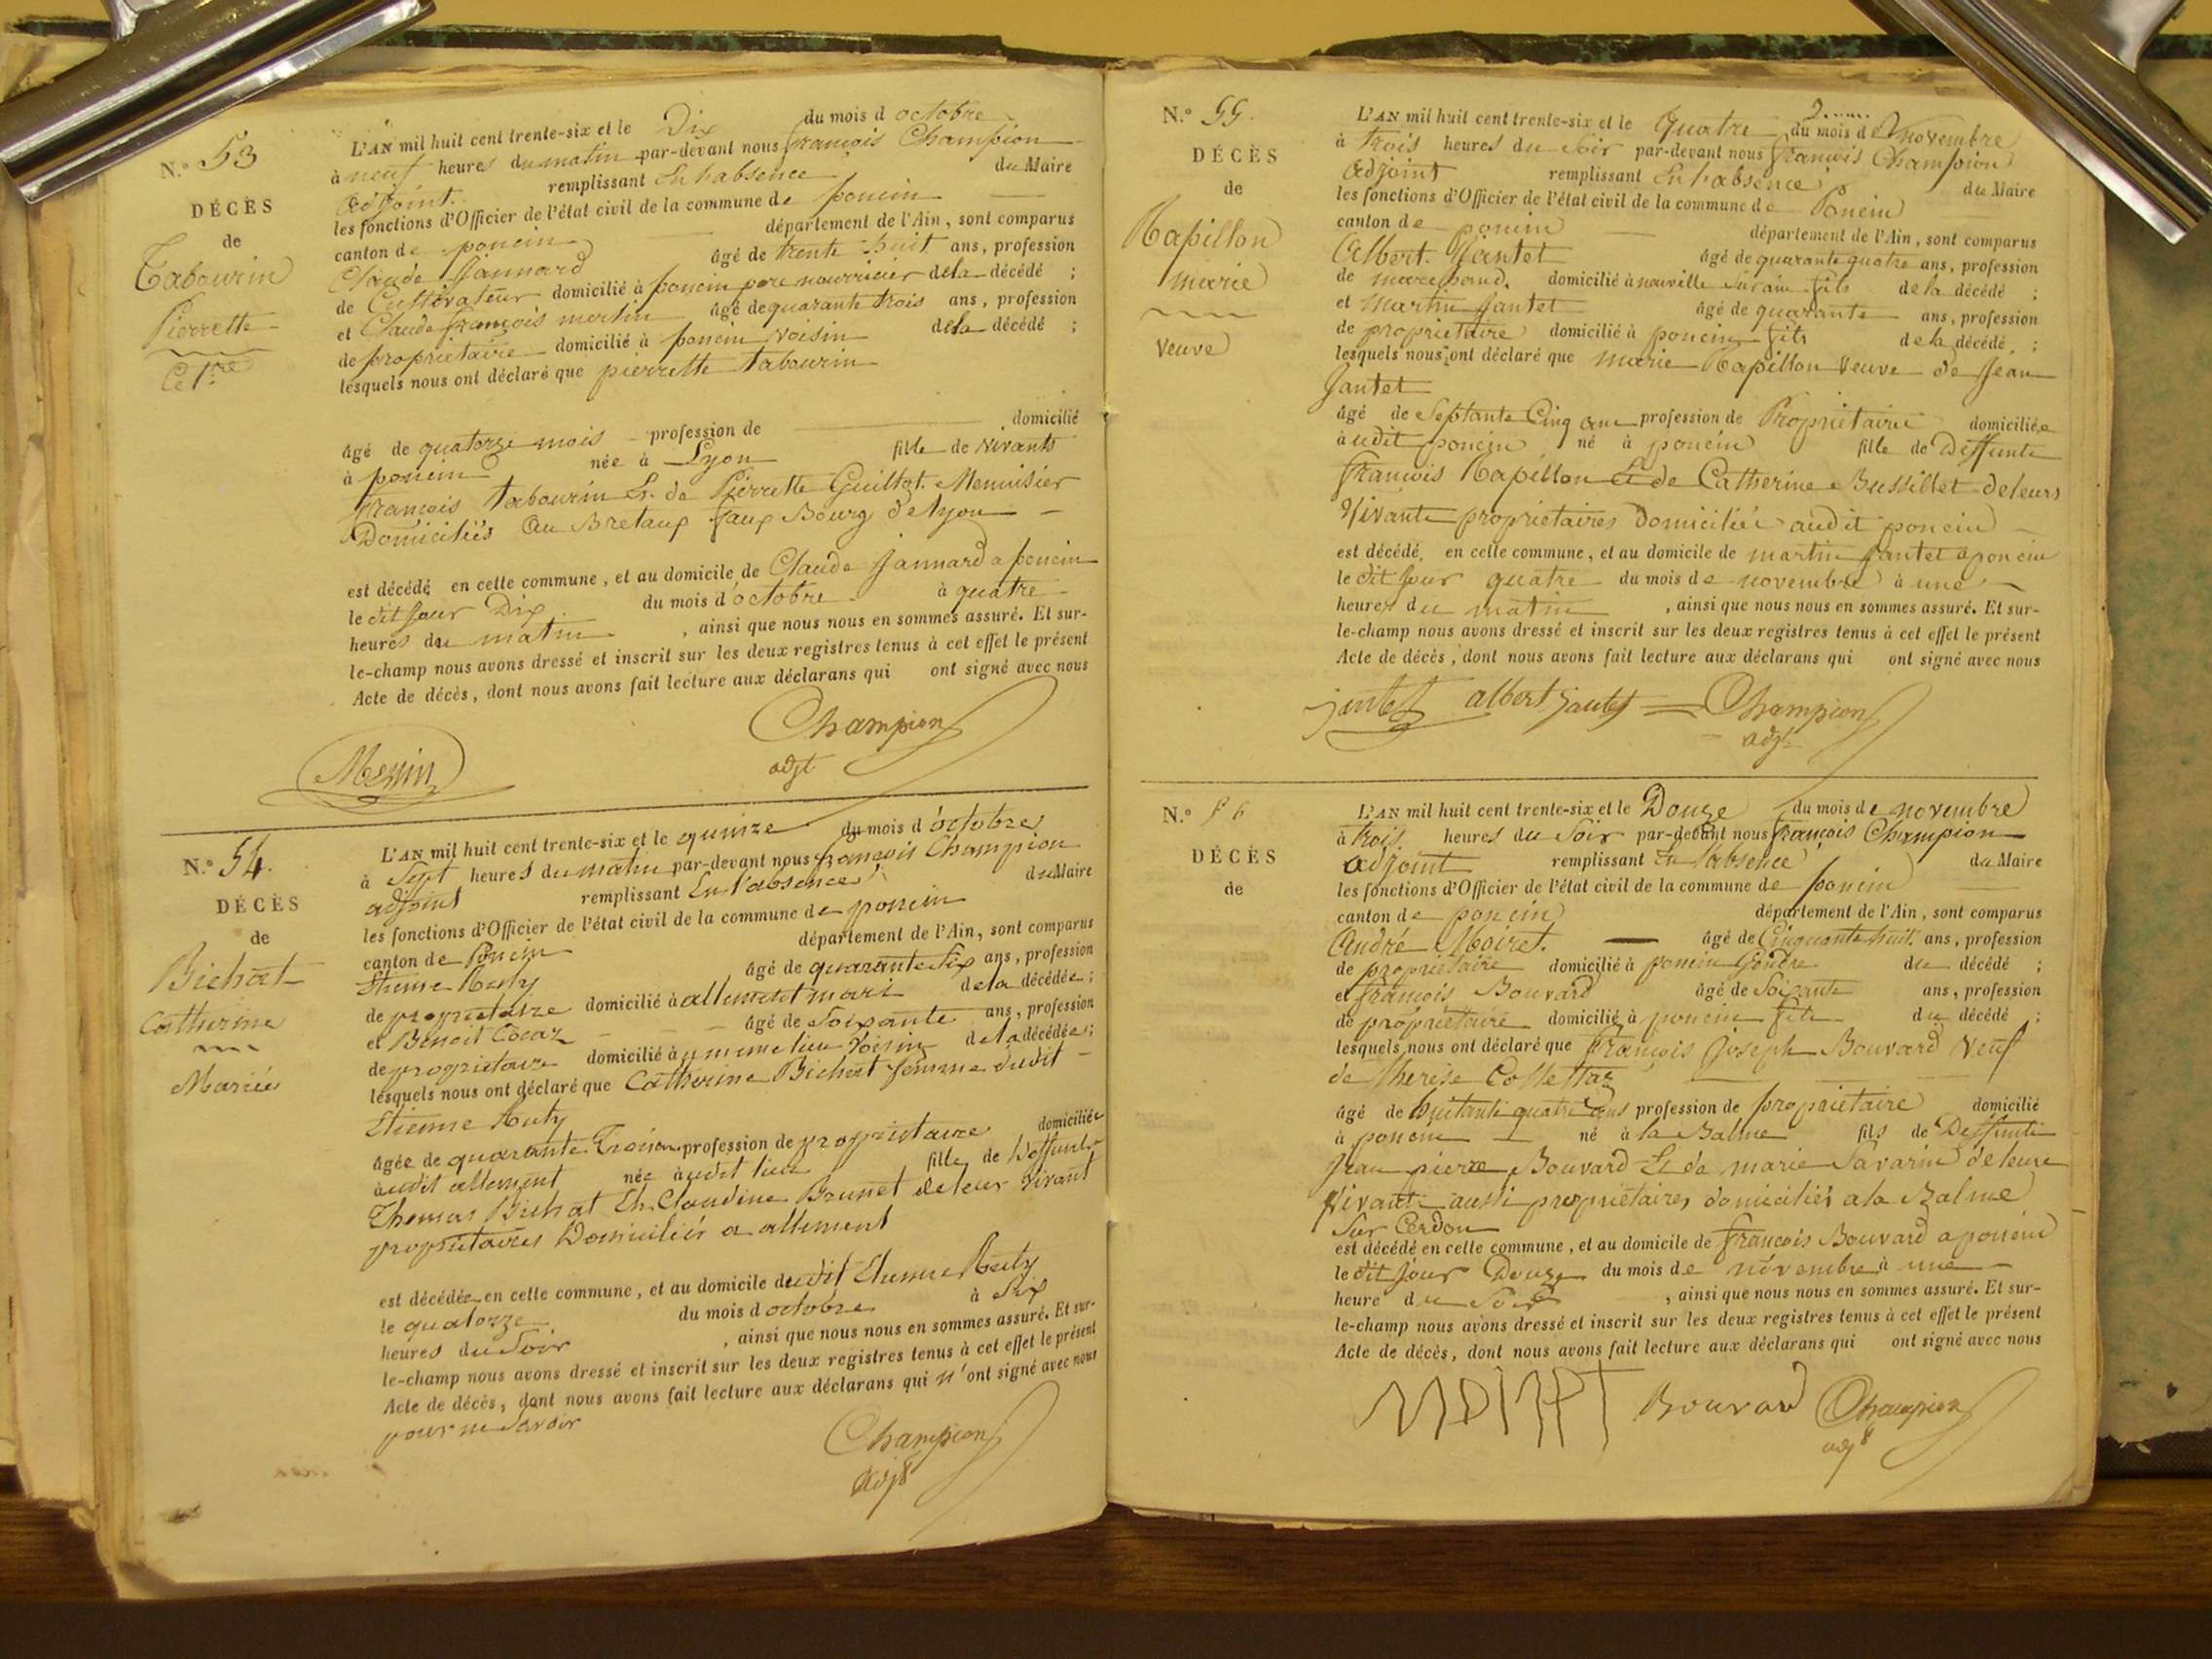 N.° 53
DÉCÈS
de
Tabourin
Pierrette
L'AN mil huit cent trente-six et le Dix du mois d octobre
à neuf heures du matin par-devant nous françois Champion
adjoint remplissant En l'absence du Maire
les fonctions d'Officier de l'état civil de la commune de poncin
canton de poncin département de l'Ain, sont comparus
Claude Jannard âgé de trente huit ans, profession
de Cultivateur domicilié à poncin pere nourricier de la décédé ;
et Claude françois âgé de quarante trois ans, profession
de propriétaire domicilié à poncin voisin de la décédé ;
lesquels nous ont déclaré que pierrette tabourin
âgé de quatorze mois profession de domicilié
à poncin née à Lyon fille de vivants
françois tabourin Et de Pierrette Guillot Menuisier
Domiciliés au Bretaux faux Bourg de Lyon
est décédé en cette commune, et au domicile de Claude Jannard a poncin
le dit jour Dix du mois d octobre à quatre
heures du matin , ainsi que nous nous en sommes assuré. Et sur-
le-champ nous avons dressé et inscrit sur les deux registres tenus à cet effet le présent
Acte de décès, dont nous avons fait lecture aux déclarans qui ont signé avec nous
Champion
adjt
N.° 54.
DÉCÈS
de
Bichat
Catherine
Mariée
L'AN mil huit cent trente-six et le quinze du mois d octobre
à Sept heures du matin par-devant nous françois Champion
adjoint remplissant En l'absence du Maire
les fonctions d'Officier de l'état civil de la commune de poncin
canton de Poncin département de l'Ain, sont comparus
Etienne âgé de quarante Six ans, profession
de propriétaire domicilié à allement mari de la décédée ;
et Benoit Cocaz âgé de Soixante ans, profession
de propriétaire domicilié à u meme lieu voisin de la décédée ;
lesquels nous ont déclaré que Catherine Bichat femme dudit
Etienne
âgée de quarante profession de propriétaire domiciliée
audit allement née audit lieu fille de Deffunts
Thomas Bichat Et Claudine Brunet de leur vivant
propriétaires Domiciliés a allement
est décédée en cette commune, et au domicile dudit Etienne
le quatorze du mois d octobre à Six
heures du Soir , ainsi que nous nous en sommes assuré. Et sur-
le-champ nous avons dressé et inscrit sur les deux registres tenus à cet effet le présent
Acte de décès, dont nous avons fait lecture aux déclarans qui n'ont signé avec nous
pour ne Savoir
Champion
N.° 55.
DÉCÈS
de
Rapillon
marie
Veuve
L'AN mil huit cent trente-six et le quatre du mois de novembre
à trois heures du Soir par-devant nous françois Champion
adjoint remplissant En l'absence du Maire
les fonctions d'Officier de l'état civil de la commune de Poncin
canton de poncin département de l'Ain, sont comparus
Albert Jantet âgé de quarante quatre ans, profession
de domicilié à neuville Sur ain fils de la décédé ;
et Martin Jantet âgé de quarante ans, profession
de propriétaire domicilié à poncin fils de la décédé ;
lesquels nous ont déclaré que marie Rapillon Veuve de Jean
Jantet
âgé de Septante Cinq ans profession de Propriétaire domiciliée
audit poncin né à poncin fille de Deffunts
françois Rapillon Et de Catherine Bussillet de leurs
Vivants propriétaires Domiciliés audit poncin
est décédé en cette commune, et au domicile de martin Jantet a poncin
le dit jour quatre du mois de novembre à une
heures du matin , ainsi que nous nous en sommes assuré. Et sur-
le-champ nous avons dressé et inscrit sur les deux registres tenus à cet effet le présent
Acte de décès, dont nous avons fait lecture aux déclarans qui ont signé avec nous
jantet albert jantet Champion
adjt
N.° 56
DÉCÈS
de
L'AN mil huit cent trente-six et le Douze du mois de novembre
à trois heures du Soir par-devant nous françois Champion
adjoint remplissant En l'absence du Maire
les fonctions d'Officier de l'état civil de la commune de poncin
canton de poncin département de l'Ain, sont comparus
André Moiret âgé de Cinquante huit ans, profession
de propriétaire domicilié à poncin Gendre du décédé ;
et françois Bouvard âgé de Soixante ans, profession
de propriétaire domicilié à poncin fils du décédé ;
lesquels nous ont déclaré que françois Joseph Bouvard Veuf
de Therese Collettaz
âgé de huitante quatre ans profession de propriétaire domicilié
à poncin né à la Balme fils de Deffunts
Jean pierre Bouvard Et de marie Savarin de leurs
vivants aussi propriétaires domiciliés a la Balme
Sur Cerdon
est décédé en cette commune, et au domicile de françois Bouvard a poncin
le dit jour Douze du mois de novembre à une
heure du Soir , ainsi que nous nous en sommes assuré. Et sur-
le-champ nous avons dressé et inscrit sur les deux registres tenus à cet effet le présent
Acte de décès, dont nous avons fait lecture aux déclarans qui ont signé avec nous
Bouvard Champion